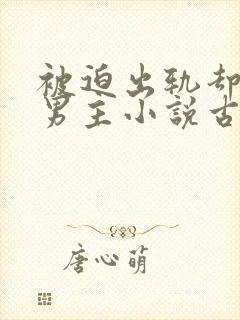 被迫出轨却
男主小说古
唐心萌